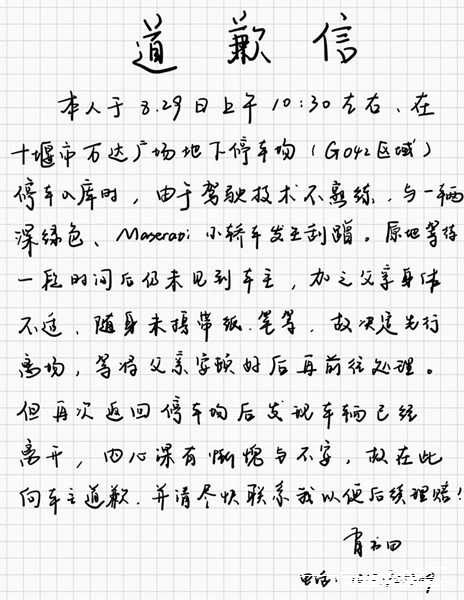 道歉信
本人于8.29日上午10:30左右、在
十堰市万达广场地下停车场(G042区域)
停车入库时,由于驾驶技术不熟练,与一辆
深绿色、Maserati小轿车发生刮蹭。原地等待
一段时间后仍未见到车主,加之父亲身体
不适、随身未携带纸、笔等,故决定先行
离场,等将父亲安顿好后再前往处理。
但再次返回停车场后发现车辆已经
离开,内心深有惭愧与不安,故在此
向车主道歉.并请尽快联系我以便后续理赔!
电话: